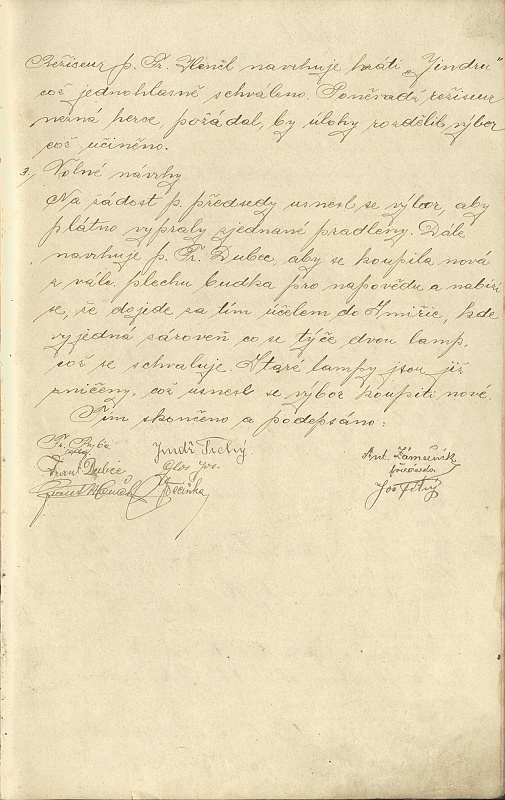 Režiseur p. Fr. Henčl navrhuje hráti „Jindru"
což jednohlasně schváleno. Poněvadž režiseur
nezná herce, požádal, by úlohy rozdělil výbor
což učiněno.
3., Volné návrhy
Na žádost p. předsedy usnesl se výbor, aby
plátno vypraly zjednané pradleny. Dále
navrhuje p. Fr. Dubec, aby se koupila nová
z vále. plechu budka pro nápovědu a nabízí
se, že dojede za tím účelem do Hmiřic, kde
vyjedná zároveň co se týče dvou lamp,
což se schvaluje. Staré lampy jsou již
zničeny, což usnesl se výbor koupiti nové.
Tím skončeno a podepsáno:
Fr. Ryba
Jindř Tichý
Ant. Zámečník
předseda
Frant. Dubec
Glos Jos.
Jos Tichý